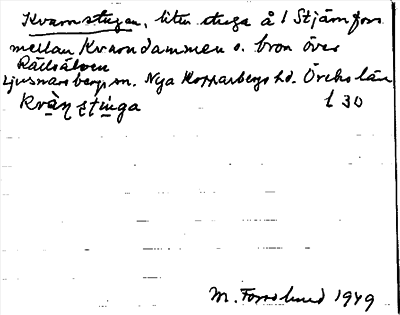 Kvarnstugan, liten stuga å 1 Stjärnfors
mellan Kvarndammen o. bron över
Rällsälven
Ljusnarsbergs sn. Nya Kopparbergs hd. Örebro län
kvà̱ṇstụ̀ga t 30
M. Forslund 1949